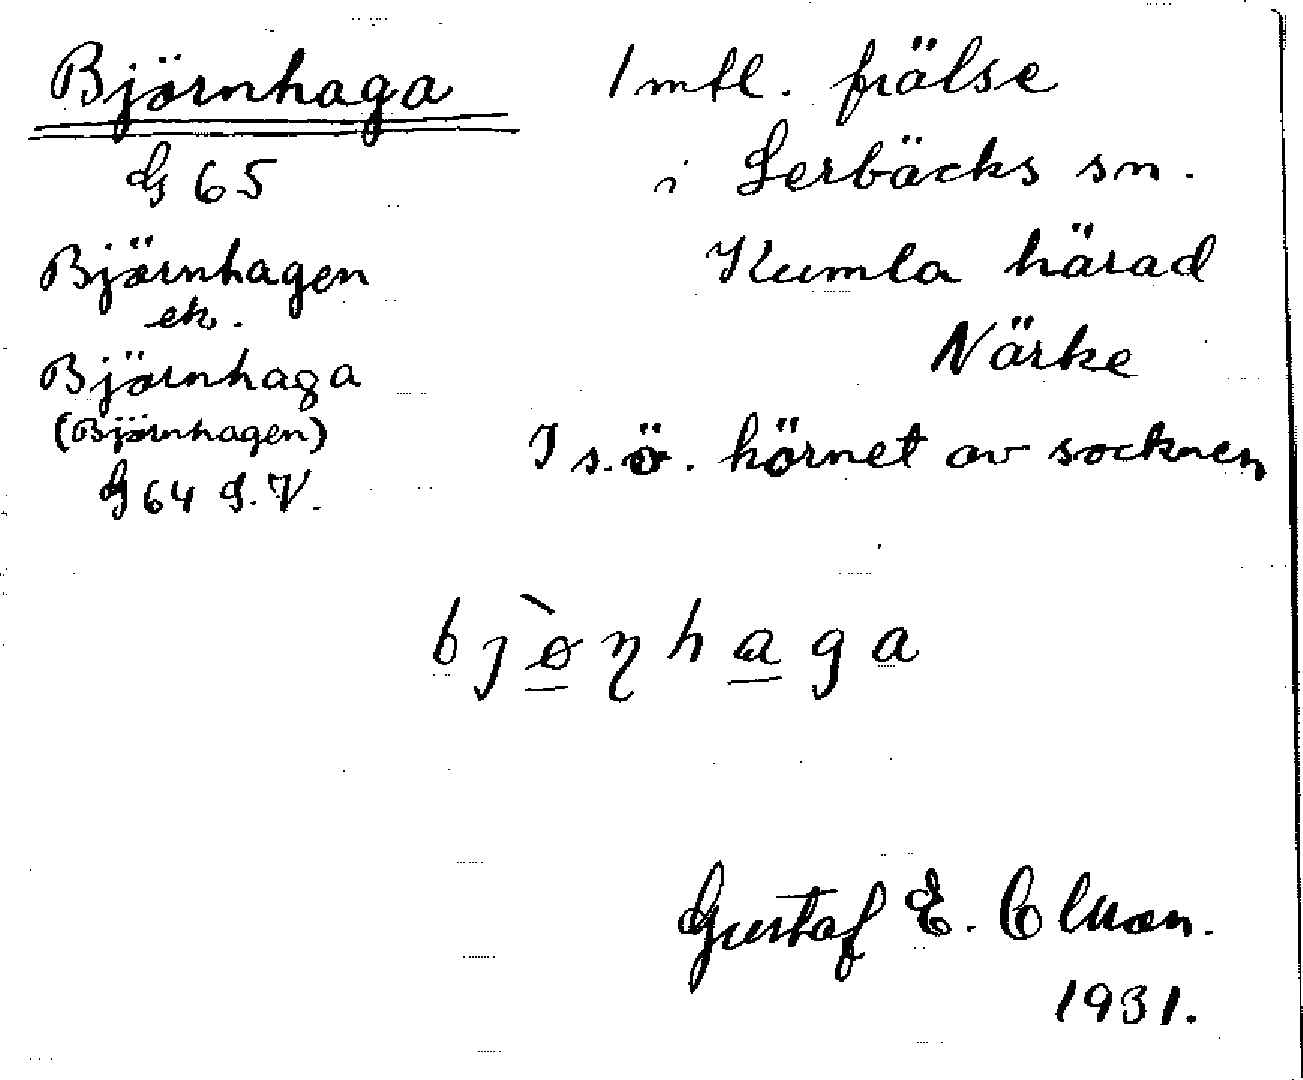 Björnhaga
G 65
Björnhagen
ek.
Björnhaga
(Björnhagen)
G 64 S.V.
1 mtl. frälse
i Lerbäcks sn.
Kumla härad
Närke
I s.ö. hörnet av socknen
bjònhaga
Gustaf E.
1931.